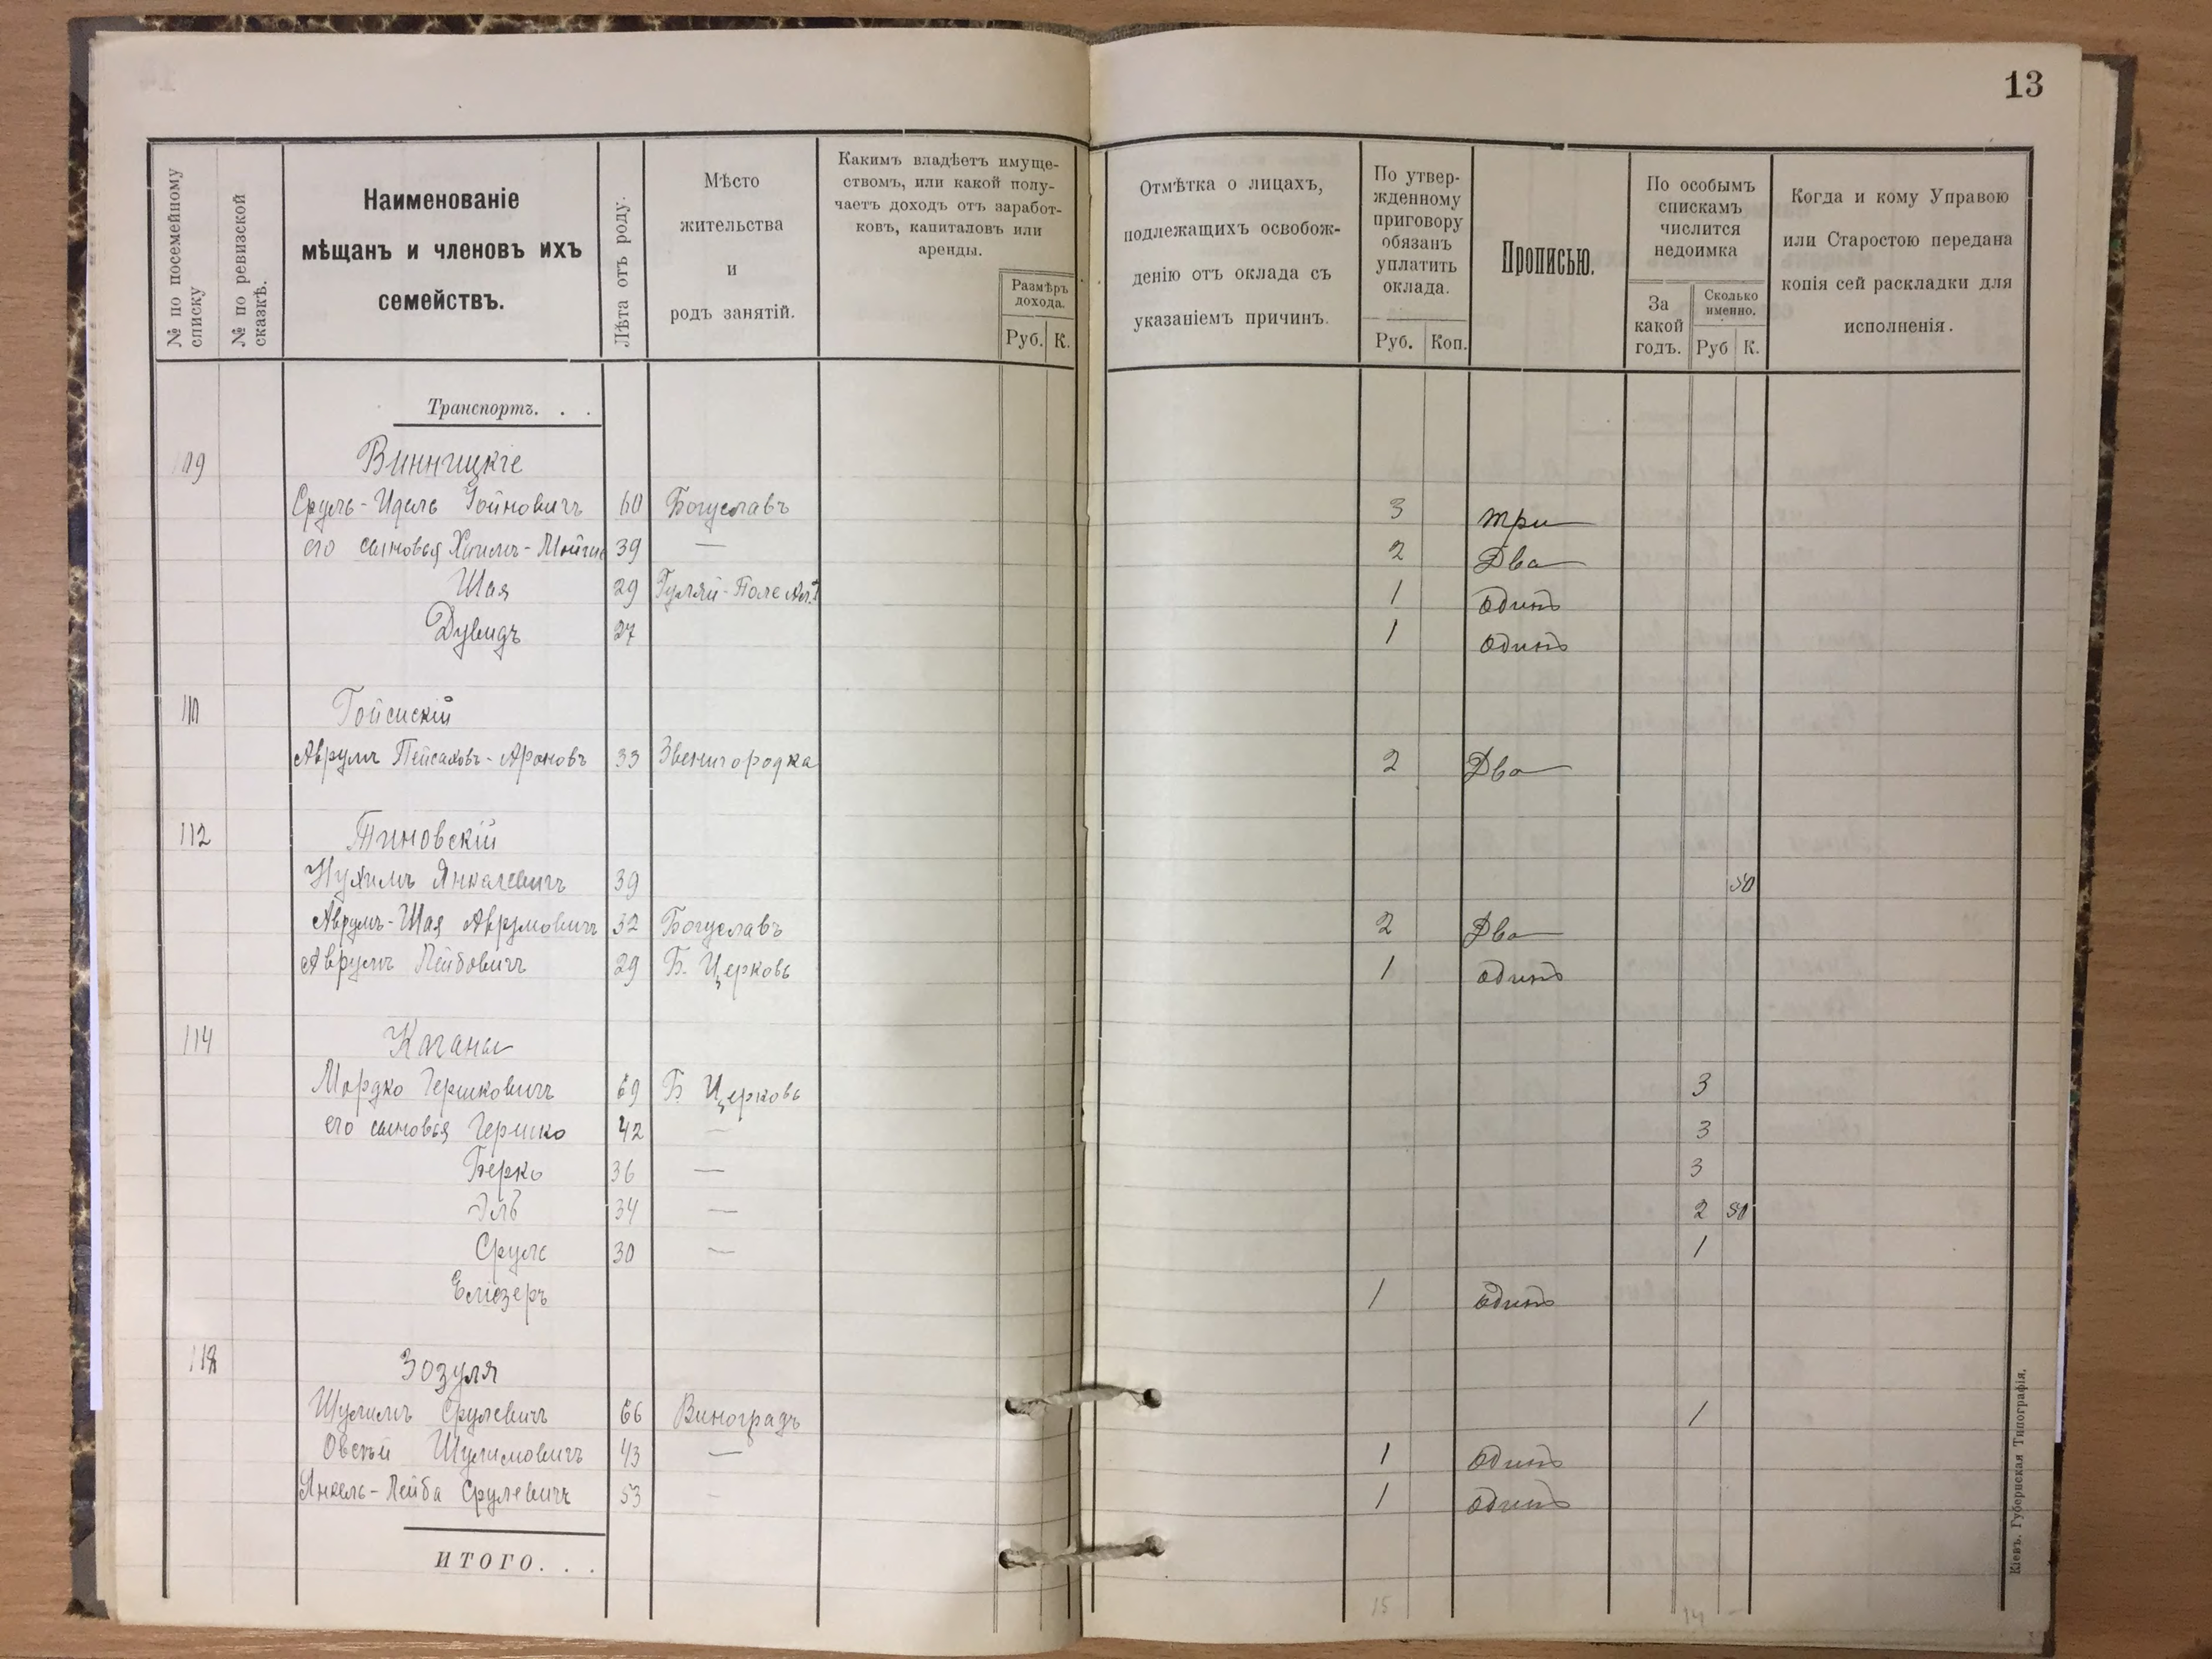 13
№ по посемейному списку
№ по ревизской сказкѣ.
Наименованіе
мѣщанъ и членовъ ихъ
семействъ.
Лѣта отъ роду.
Мѣсто
жительства
и
родъ занятій.
Какимъ владѣетъ имуще-
ствомъ, или какой полу-
чаетъ доходъ отъ заработ-
ковъ, капиталовъ или
аренды.
Размѣръ
дохода.
Руб. К.
Отмѣтка о лицахъ,
подлежащихъ освобож-
денію отъ оклада съ
указаніемъ причинъ.
По утвер-
жденному
приговору
обязанъ
уплатить
оклада.
Руб. Коп.
Прописью.
По особымъ
спискамъ
числится
недоимка
За
какой
годъ.
Сколько
именно.
Руб К.
Когда и кому Управою
или Старостою передана
копія сей раскладки для
исполненія.
Транспортъ. . .
109 Винницкіе
Сруль-Идель Гойновичъ 60 Богуславъ 3 три
его сыновья Хаимъ- 39 — 2 Два
Шая 29 Гуляй-Поле 1 одинъ
Дувидъ 27 1 одинъ
110 Гойсискій
Аврумъ Пейсаховъ-Ароновъ 33 Звенигородка 2 Два
112 Тиновскій
Нухимъ Янкелевичъ 39 50
Аврумъ-Шая Аврумовичъ 32 Богуславъ 2 Два
Аврумъ Лейбовичъ 29 Б. Церковь 1 одинъ
114 Каганы
Мордко Гершковичъ 69 Б. Церковь 3
его сыновья Гершко 42 — 3
Берко 36 — 3
Эль 34 — 2 50
Сруль 30 — 1
Еліезеръ 1 одинъ
118 Зозуля
Шулимъ Срулевичъ 66 Виноградъ 1
Овсѣй Шулимовичъ 43 — 1 одинъ
Янкель-Лейба Срулевичъ 53 — 1 одинъ
ИТОГО. . .
15 14 —
Кіевъ. Губернская Типографія.